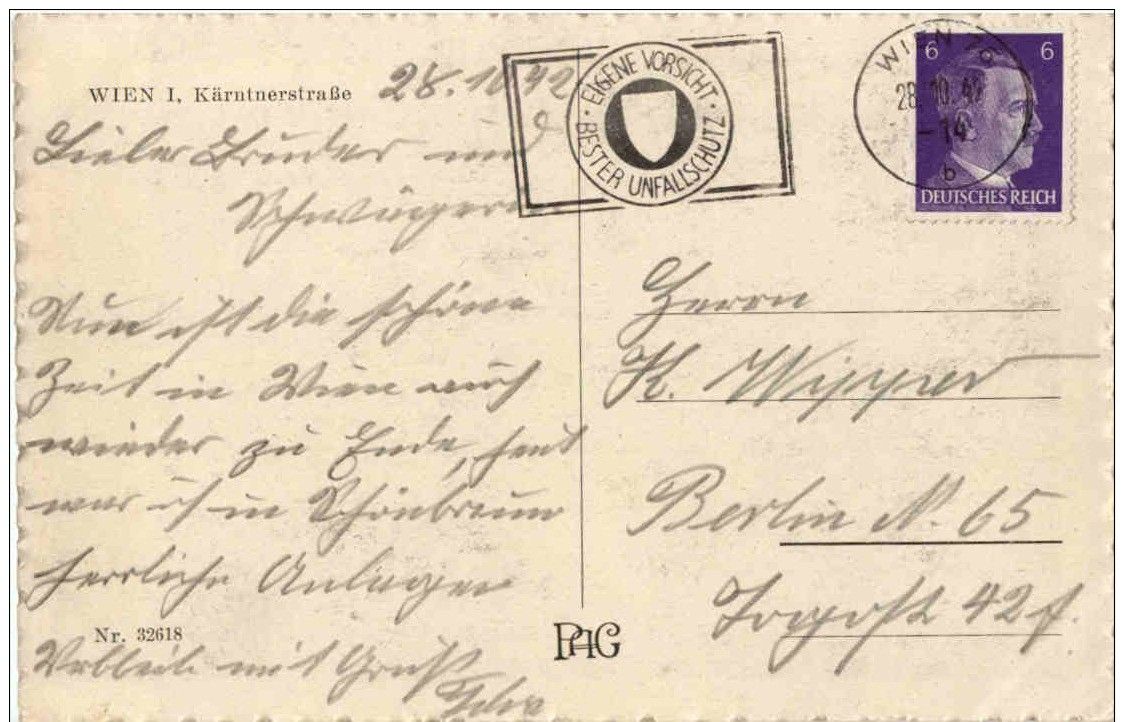 WIEN I, Kärntnerstraße
28.10.42
Lieber Bruder und
Schwägerin
Nun ist die schöne
Zeit in Wien auch
wieder zu Ende, heut
war ich in Schönbrunn
herrliche Anlagen
Verbleibe mit Gruß
Nr. 32618
PAG
EIGENE VORSICHT · BESTER UNFALLSCHUTZ ·
WIEN
28.10.42
-14
b
6 6
DEUTSCHES REICH
Herrn
K. Wipper
Berlin N. 65
42